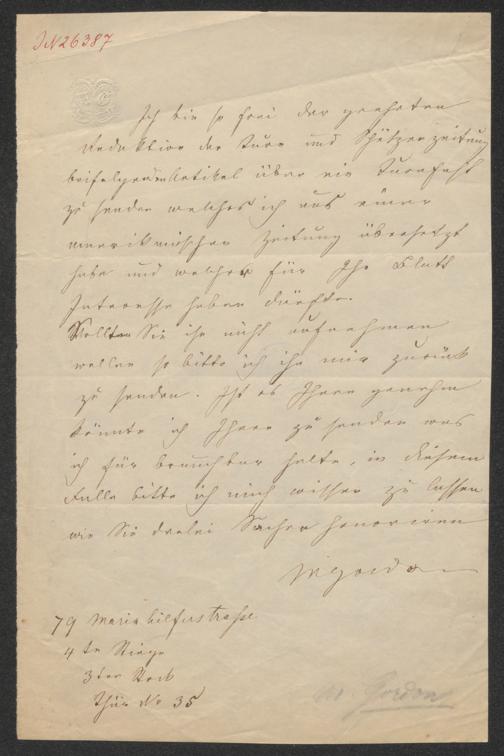 IN 26387
Ich bin so frei der geehrten
Redaktion der Turn und Schützenzeitung
beifolgenden Artikel über ein Turnfest
zu senden welches ich aus einer
amerikanischen Zeitung übersetzt
habe und welches für Ihr Blatt
Interesse haben dürfte.
Wollten Sie ihn nicht aufnehmen
wollen so bitte ich ihn mir zurück
zu senden. Ist es Ihnen genehm
könnte ich Ihnen zu senden was
ich für brauchbar halte, in diesem
Falle bitte ich mich wissen zu lassen
wie Sie derlei Sachen honoriren
M Gordon
79 Mariahilferstraße
4te Stiege
3ter Stock
Thür No 35
M. Gordon